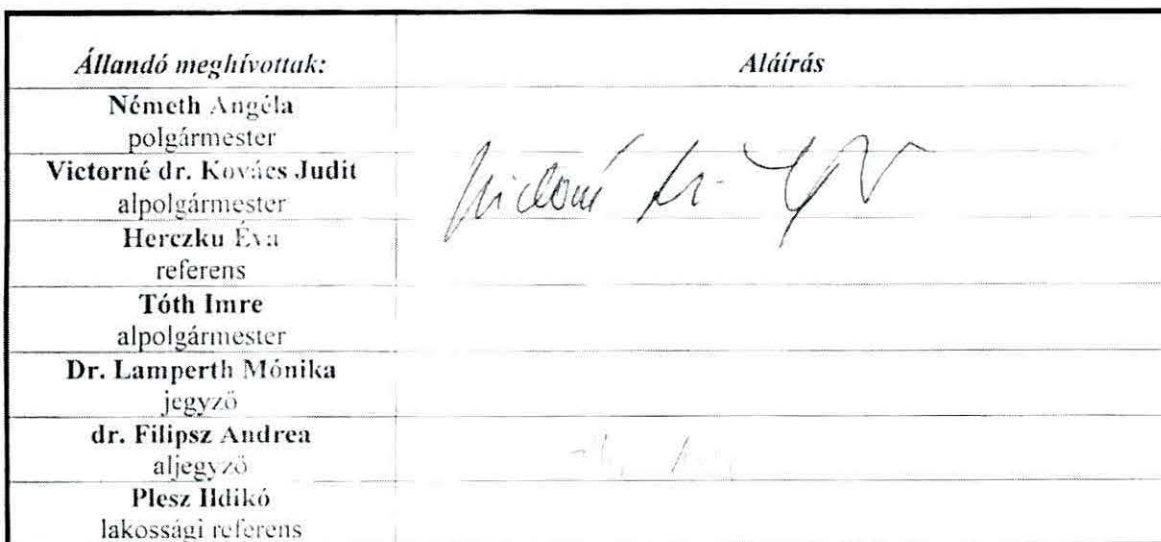 Állandó meghívottak: Aláírás
Németh Angéla
polgármester
Victorné dr. Kovács Judit
alpolgármester
Herczku Éva
referens
Tóth Imre
alpolgármester
Dr. Lamperth Mónika
jegyző
dr. Filipsz Andrea
aljegyző
Plesz Ildikó
lakossági referens